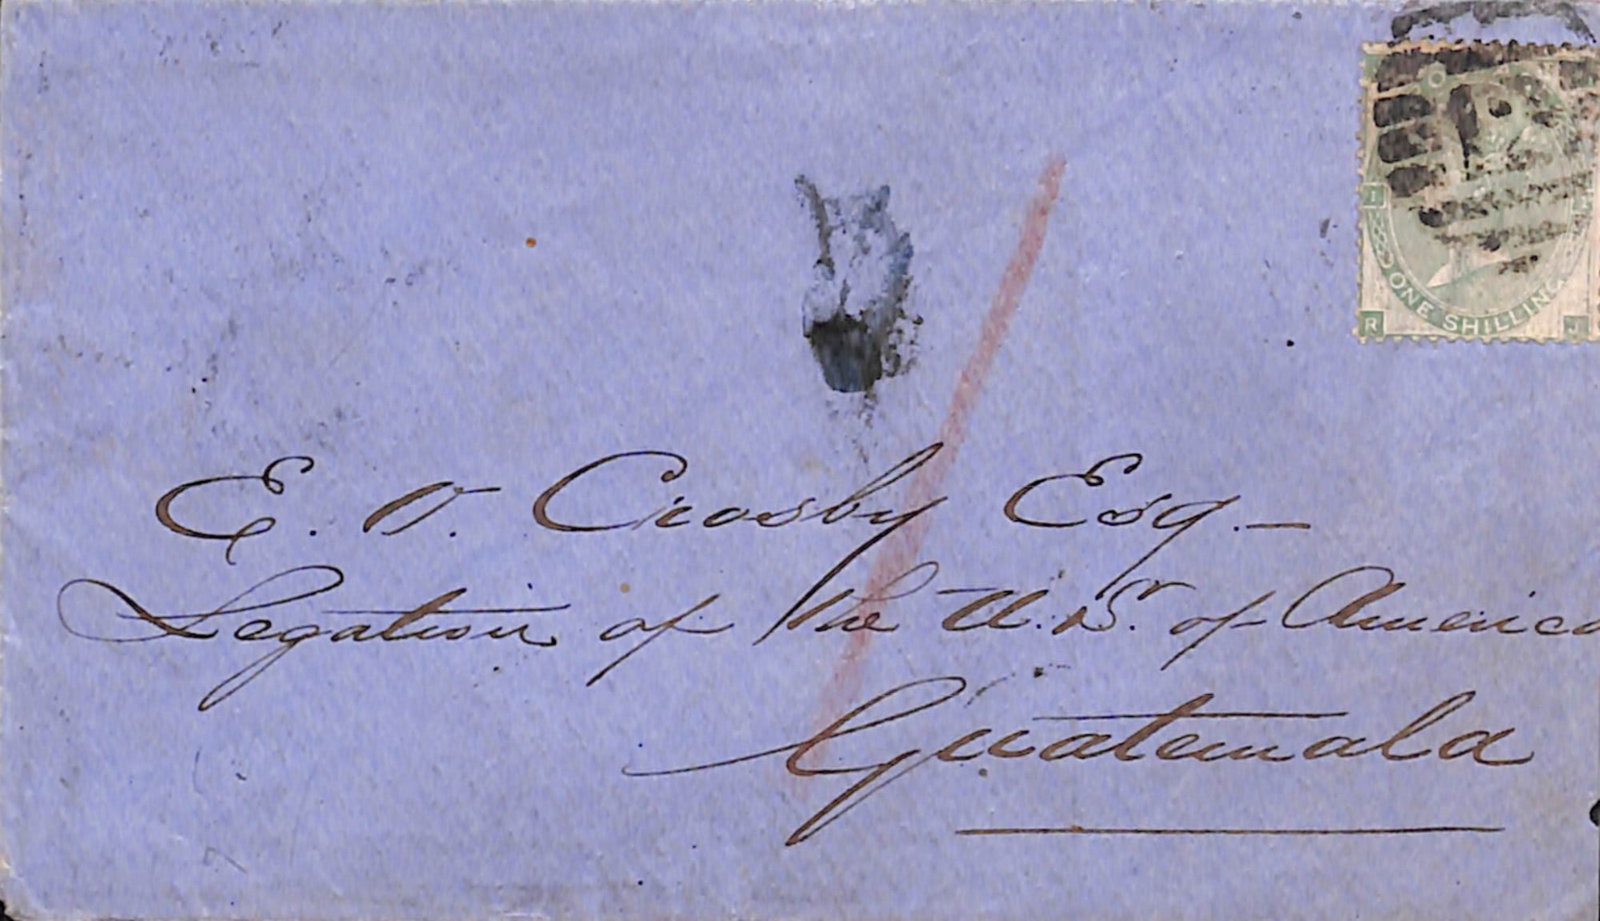 E. O. Crosby Esq.
Legation of the U.S. of America
Guatemala
ONE SHILLING
I
R J